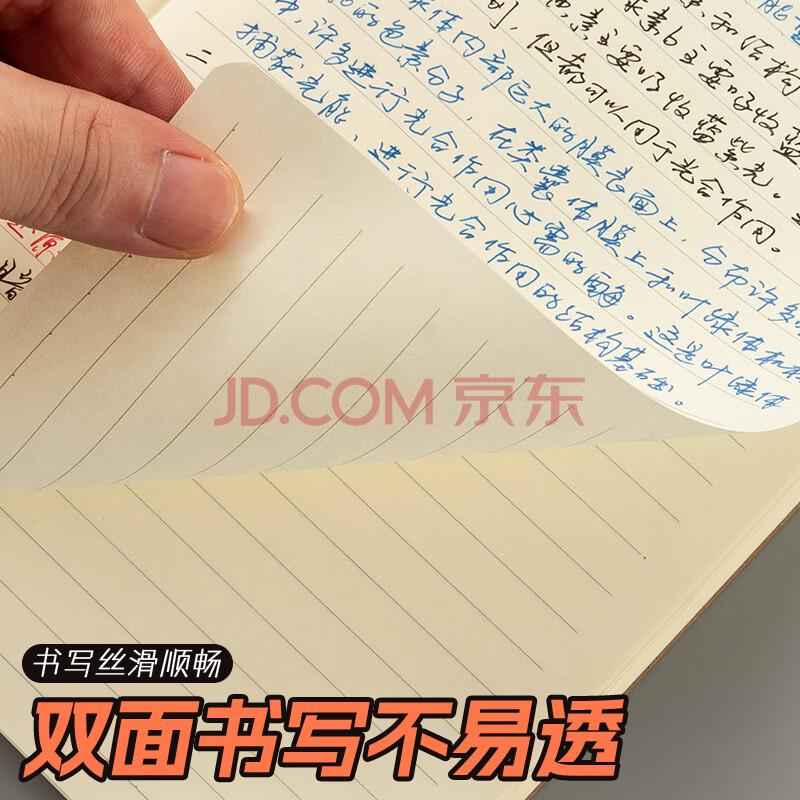 能量
和结构
素b主要吸收蓝
素主要吸收蓝紫光。
但都可以用于光合作用。
体内部巨大的膜表面上，分布许多
的色素分子，在类囊体膜上和叶绿体
中，许多进行光合作用必需的酶。这是叶绿体
捕获光能、进行光合作用的结构基础。
二
JD.COM 京东
书写丝滑顺畅
双面书写不易透